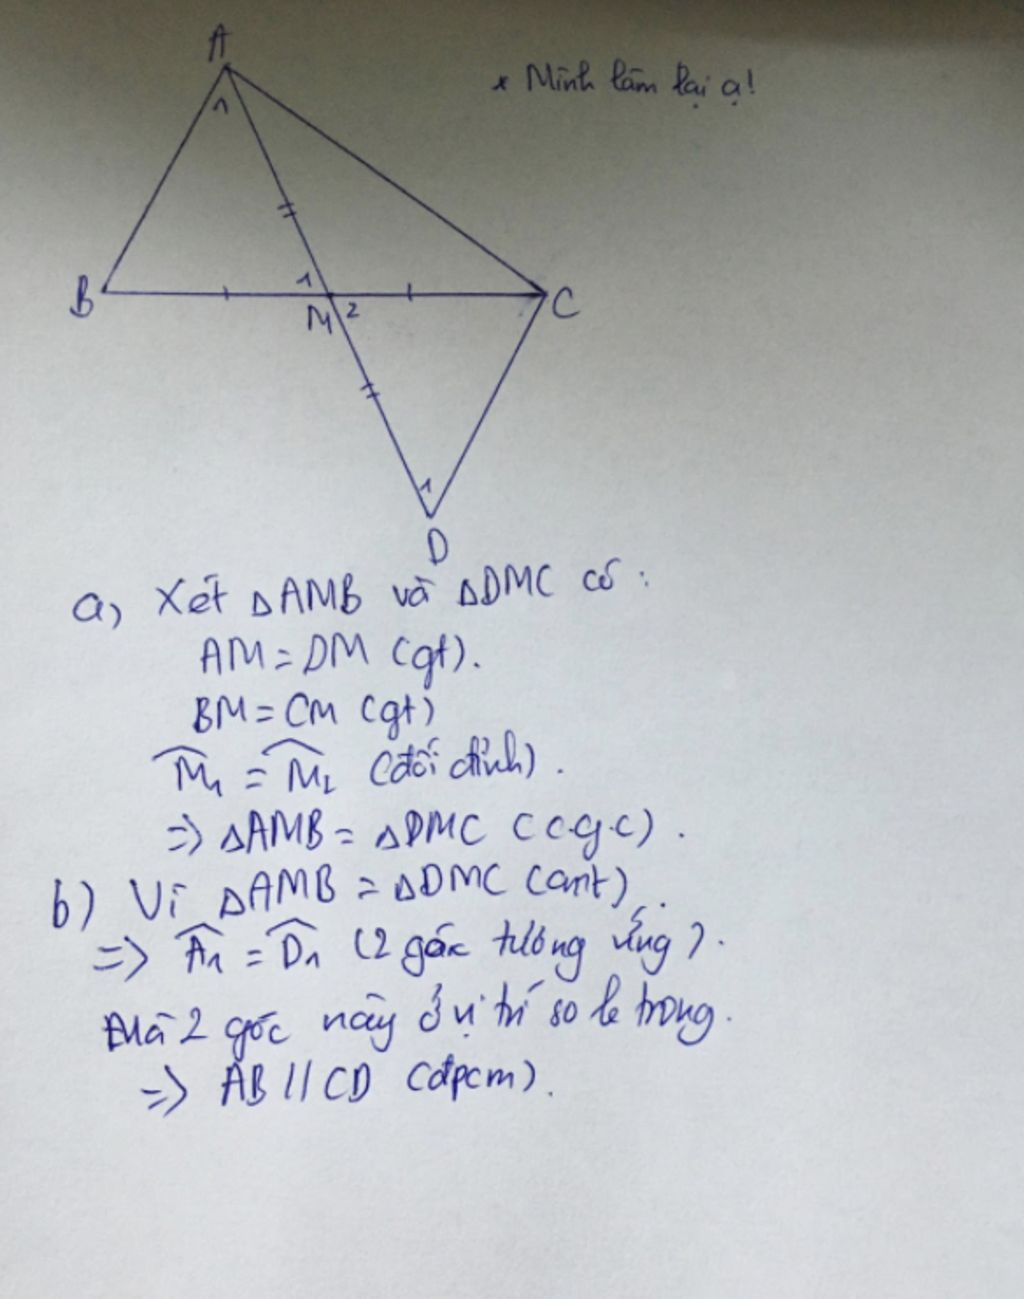 A
* Mình làm lại ạ!
1
B
1
M 2
C
1
D
a) Xét ΔAMB và ΔDMC có :
AM = DM (gt).
BM = CM (gt)
M̂₁ = M̂₂ (đối đỉnh).
=> ΔAMB = ΔDMC (c.g.c).
b) Vì ΔAMB = ΔDMC (cmt).
=> Â₁ = D̂₁ (2 góc tương ứng).
Mà 2 góc này ở vị trí so le trong.
=> AB // CD (đpcm).